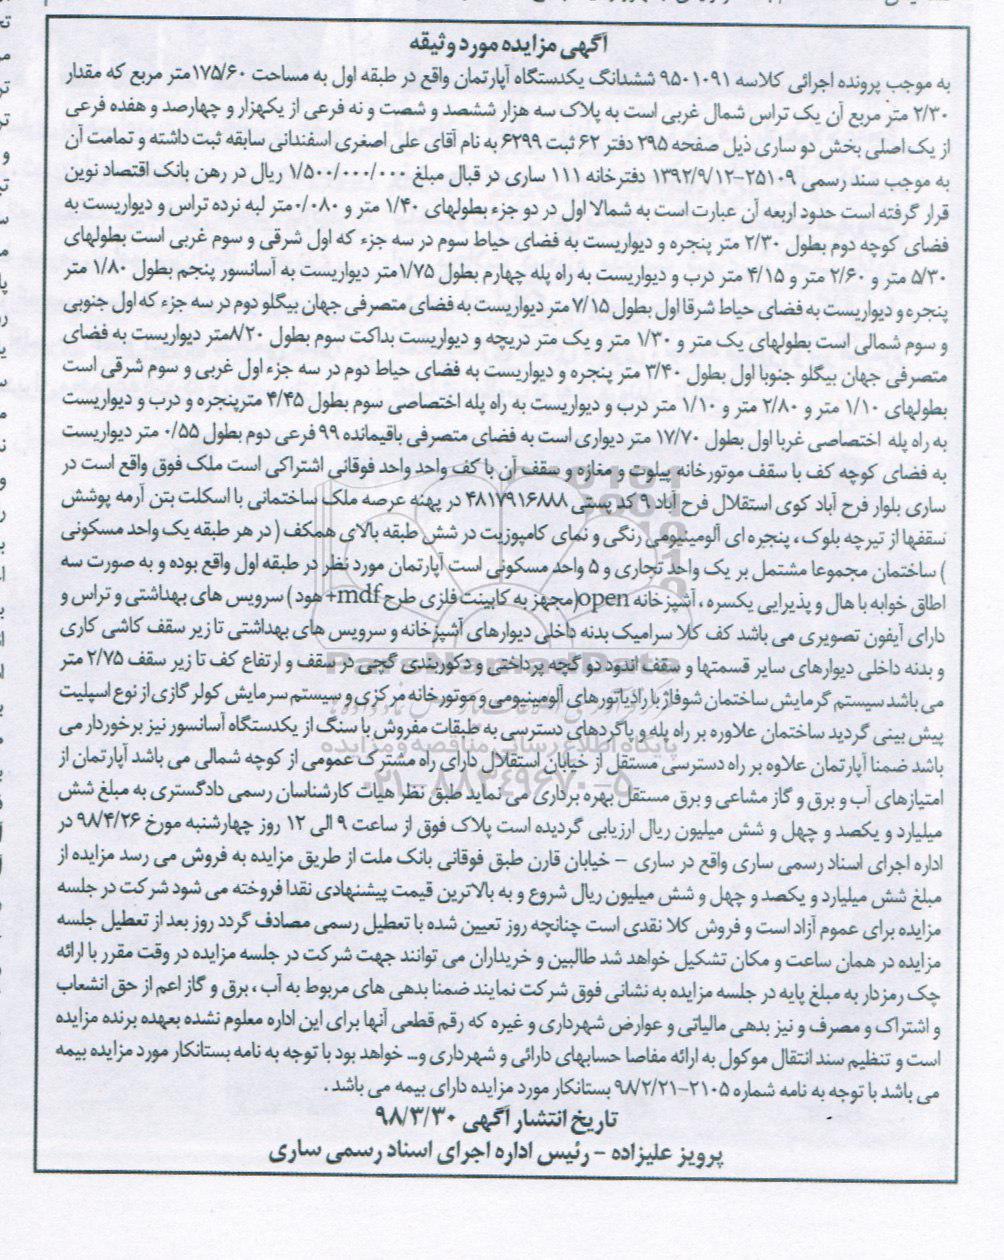 آگهی مزایده مورد وثیقه
به موجب پرونده اجرائی کلاسه ۹۵۰۱۰۹۱ ششدانگ یکدستگاه آپارتمان واقع در طبقه اول به مساحت ۱۷۵/۶۰متر مربع که مقدار
۲/۳۰ متر مربع آن یک تراس شمال غربی است به پلاک سه هزار ششصد و شصت و نه فرعی از یکهزار و چهارصد و هفده فرعی
از یک اصلی بخش دو ساری ذیل صفحه ۲۹۵ دفتر ۶۲ ثبت ۶۲۹۹ به نام آقای علی اصغری اسفندانی سابقه ثبت داشته و تمامت آن
به موجب سند رسمی ۲۵۱۰۹-۱۳۹۲/۹/۱۲ دفترخانه ۱۱۱ ساری در قبال مبلغ ۱/۵۰۰/۰۰۰/۰۰۰ ریال در رهن بانک اقتصاد نوین
قرار گرفته است حدود اربعه آن عبارت است به شمالا اول در دو جزء بطولهای ۱/۴۰ متر و ۰/۰۸۰متر لبه نرده تراس و دیواریست به
فضای کوچه دوم بطول ۲/۳۰ متر پنجره و دیواریست به فضای حیاط سوم در سه جزء که اول شرقی و سوم غربی است بطولهای
۵/۳۰ متر و ۲/۶۰ متر و ۴/۱۵ متر درب و دیواریست به راه پله چهارم بطول ۱/۷۵متر دیواریست به آسانسور پنجم بطول ۱/۸۰ متر
پنجره و دیواریست به فضای حیاط شرقا اول بطول ۷/۱۵ متر دیواریست به فضای متصرفی جهان بیگلو دوم در سه جزء که اول جنوبی
و سوم شمالی است بطولهای یک متر و ۱/۳۰ متر و یک متر دریچه و دیواریست بداکت سوم بطول ۸/۲۰متر دیواریست به فضای
متصرفی جهان بیگلو جنوبا اول بطول ۳/۴۰ متر پنجره و دیواریست به فضای حیاط دوم در سه جزء اول غربی و سوم شرقی است
بطولهای ۱/۱۰ متر و ۲/۸۰ متر و ۱/۱۰ متر درب و دیواریست به راه پله اختصاصی سوم بطول ۴/۴۵ مترپنجره و درب و دیواریست
به راه پله اختصاصی غربا اول بطول ۱۷/۷۰ متر دیواری است به فضای متصرفی باقیمانده ۹۹ فرعی دوم بطول ۰/۵۵ متر دیواریست
به فضای کوچه کف با سقف موتورخانه پیلوت و مغازه و سقف آن با کف واحد واحد فوقانی اشتراکی است ملک فوق واقع است در
ساری بلوار فرح آباد کوی استقلال فرح آباد۹ کد پستی ۴۸۱۷۹۱۶۸۸۸ در پهنه عرصه ملک ساختمانی با اسکلت بتن آرمه پوشش
سقفها از تیرچه بلوک ، پنجره ای آلومینیومی رنگی و نمای کامپوزیت در شش طبقه بالای همکف ( در هر طبقه یک واحد مسکونی
) ساختمان مجموعا مشتمل بر یک واحد تجاری و ۵ واحد مسکونی است آپارتمان مورد نظر در طبقه اول واقع بوده و به صورت سه
اطاق خوابه با هال و پذیرایی یکسره ، آشپزخانه open(مجهز به کابینت فلزی طرح mdf+ هود ) سرویس های بهداشتی و تراس و
دارای آیفون تصویری می باشد کف کلا سرامیک بدنه داخلی دیوارهای آشپزخانه و سرویس های بهداشتی تا زیر سقف کاشی کاری
و بدنه داخلی دیوارهای سایر قسمتها و سقف اندود دو گچه پرداختی و دکوربندی گچی در سقف و ارتفاع کف تا زیر سقف ۲/۷۵ متر
می باشد سیستم گرمایش ساختمان شوفاژ با رادیاتورهای آلومینیومی و موتورخانه مرکزی و سیستم سرمایش کولر گازی از نوع اسپلیت
پیش بینی گردید ساختمان علاوره بر راه پله و پاگردهای دسترسی به طبقات مفروش با سنگ از یکدستگاه آسانسور نیز برخوردار می
باشد ضمنا آپارتمان علاوه بر راه دسترسی مستقل از خیابان استقلال دارای راه مشترک عمومی از کوچه شمالی می باشد آپارتمان از
امتیازهای آب و برق و گاز مشاعی و برق مستقل بهره برداری می نماید طبق نظر هیات کارشناسان رسمی دادگستری به مبلغ شش
میلیارد و یکصد و چهل و شش میلیون ریال ارزیابی گردیده است پلاک فوق از ساعت ۹ الی ۱۲ روز چهارشنبه مورخ ۹۸/۴/۲۶ در
اداره اجرای اسناد رسمی ساری واقع در ساری – خیابان قارن طبق فوقانی بانک ملت از طریق مزایده به فروش می رسد مزایده از
مبلغ شش میلیارد و یکصد و چهل و شش میلیون ریال شروع و به بالاترین قیمت پیشنهادی نقدا فروخته می شود شرکت در جلسه
مزایده برای عموم آزاد است و فروش کلا نقدی است چنانچه روز تعیین شده با تعطیل رسمی مصادف گردد روز بعد از تعطیل جلسه
مزایده در همان ساعت و مکان تشکیل خواهد شد طالبین و خریداران می توانند جهت شرکت در جلسه مزایده در وقت مقرر با ارائه
چک رمزدار به مبلغ پایه در جلسه مزایده به نشانی فوق شرکت نمایند ضمنا بدهی های مربوط به آب ، برق و گاز اعم از حق انشعاب
و اشتراک و مصرف و نیز بدهی مالیاتی و عوارض شهرداری و غیره که رقم قطعی آنها برای این اداره معلوم نشده بعهده برنده مزایده
است و تنظیم سند انتقال موکول به ارائه مفاصا حسابهای دارائی و شهرداری و... خواهد بود با توجه به نامه بستانکار مورد مزایده بیمه
می باشد با توجه به نامه شماره ۲۱۰۵-۹۸/۲/۲۱ بستانکار مورد مزایده دارای بیمه می باشد .
تاریخ انتشار آگهی ۹۸/۳/۳۰
پرویز علیزاده – رئیس اداره اجرای اسناد رسمی ساری
ParsNamadData
پایگاه اطلاع رسانی مناقصه و مزایده
۰۲۱-۸۸۳۴۹۶۷۰-۵